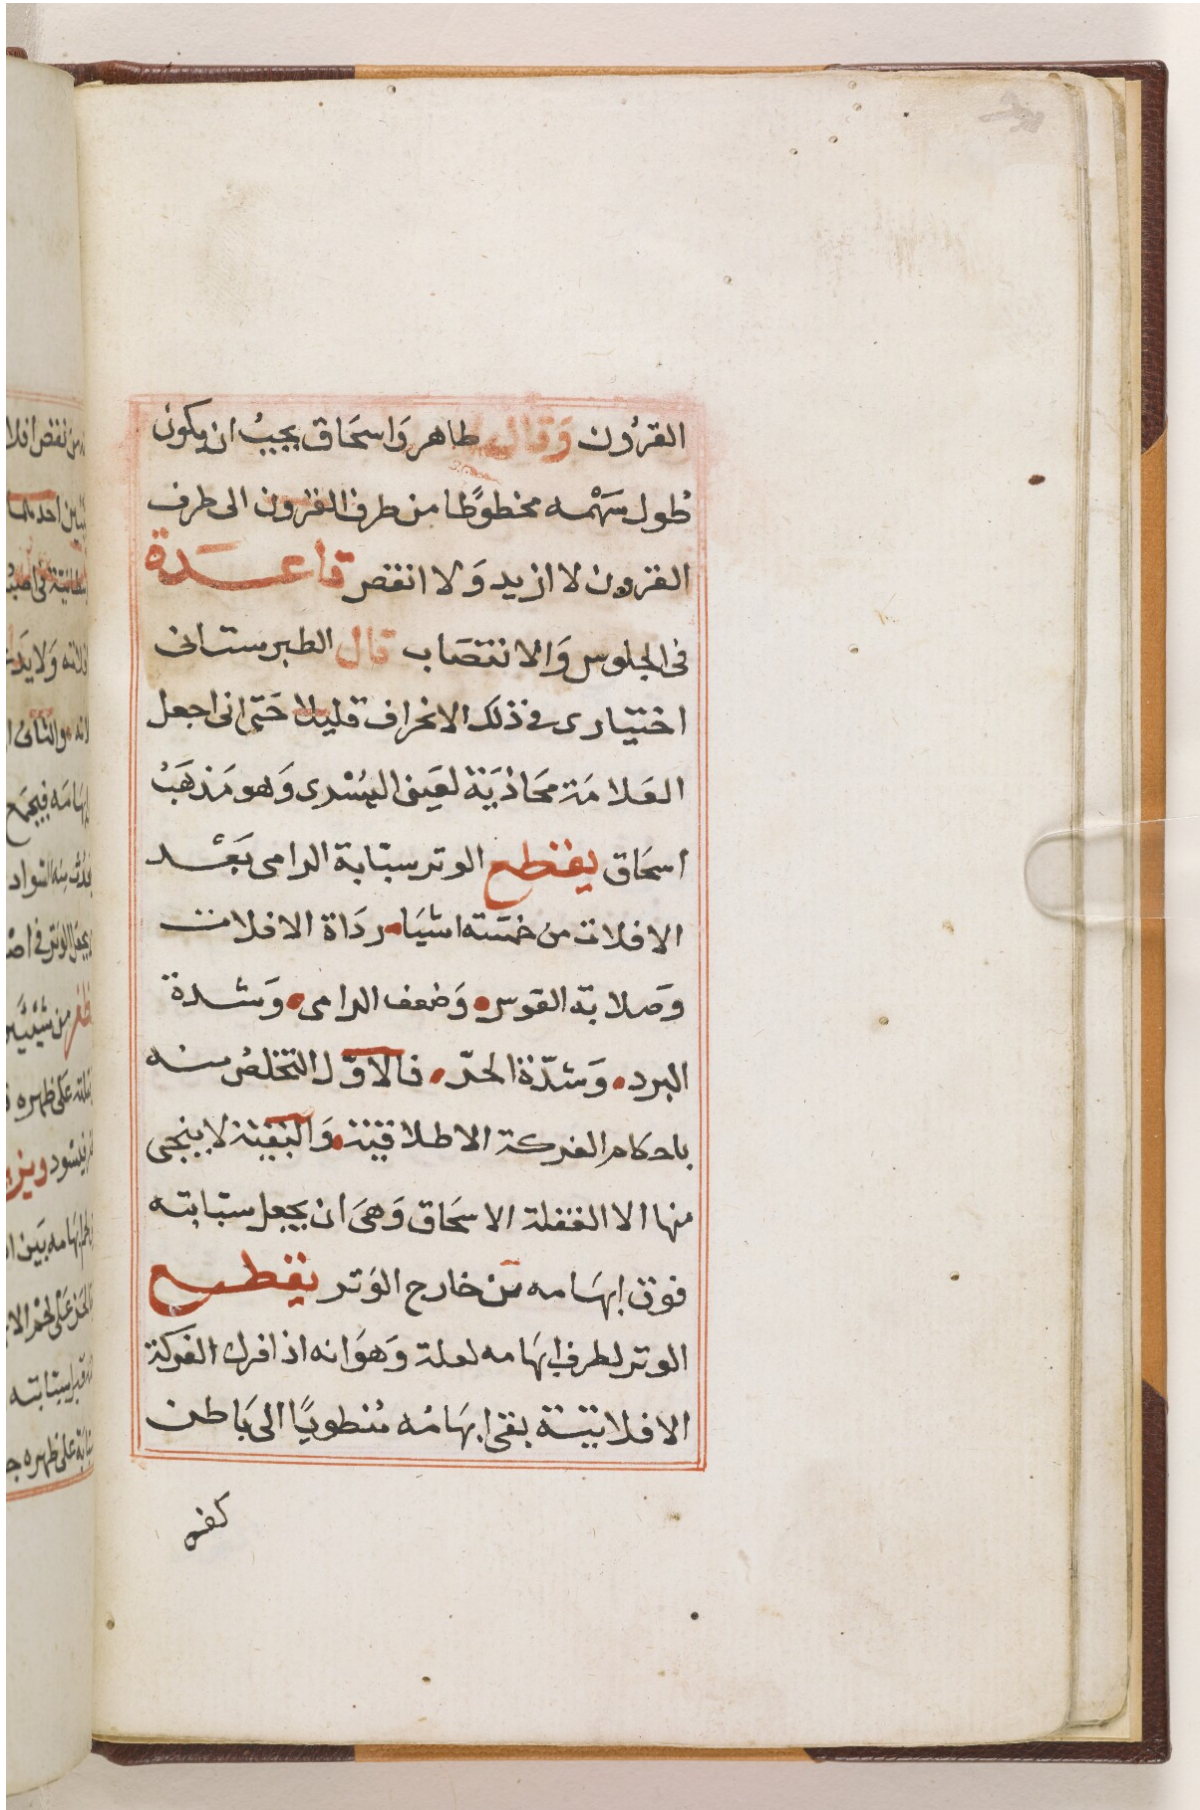 القرون وقال طاهر وَاسحَاق يجبُ ان يكون
طول سَهْمه مخطوطًا من طرف القرون الى طرف
القرون لا ازيد وَلا انقص قاعدة
فى الجلوس وَالانتصَاب قال الطبرستانى
اختيارى فى ذلك الانحراف قليلا حَتى انى اجعل
العَلامَة محَاذيَة لعَينى اليُسْرى وَهو مَذهَبُ
اسحَاق يقطع الوتر سبابة الرامى بَعْد
الافلات من خمسَة اشيَاء رداة الافلات
وصَلابة القوس وَضعف الرامى وَشدة
البرد وَشدّة الحرّ فالاوّل التخلصُ منه
باحكام الفركة الاطلاقية وَالبَقية لا ينجى
منها الا القفلة الاسحَاق وَهىَ ان يجعل سبابته
فوق ابهَامه من خارج الوَتر يقطع
الوتر لطرف ابهَامه لعلة وَهوَ انه اذا فرك الفركة
الافلاتية بقى ابهَامُه مُنطويًا الى بَاطن
كفه